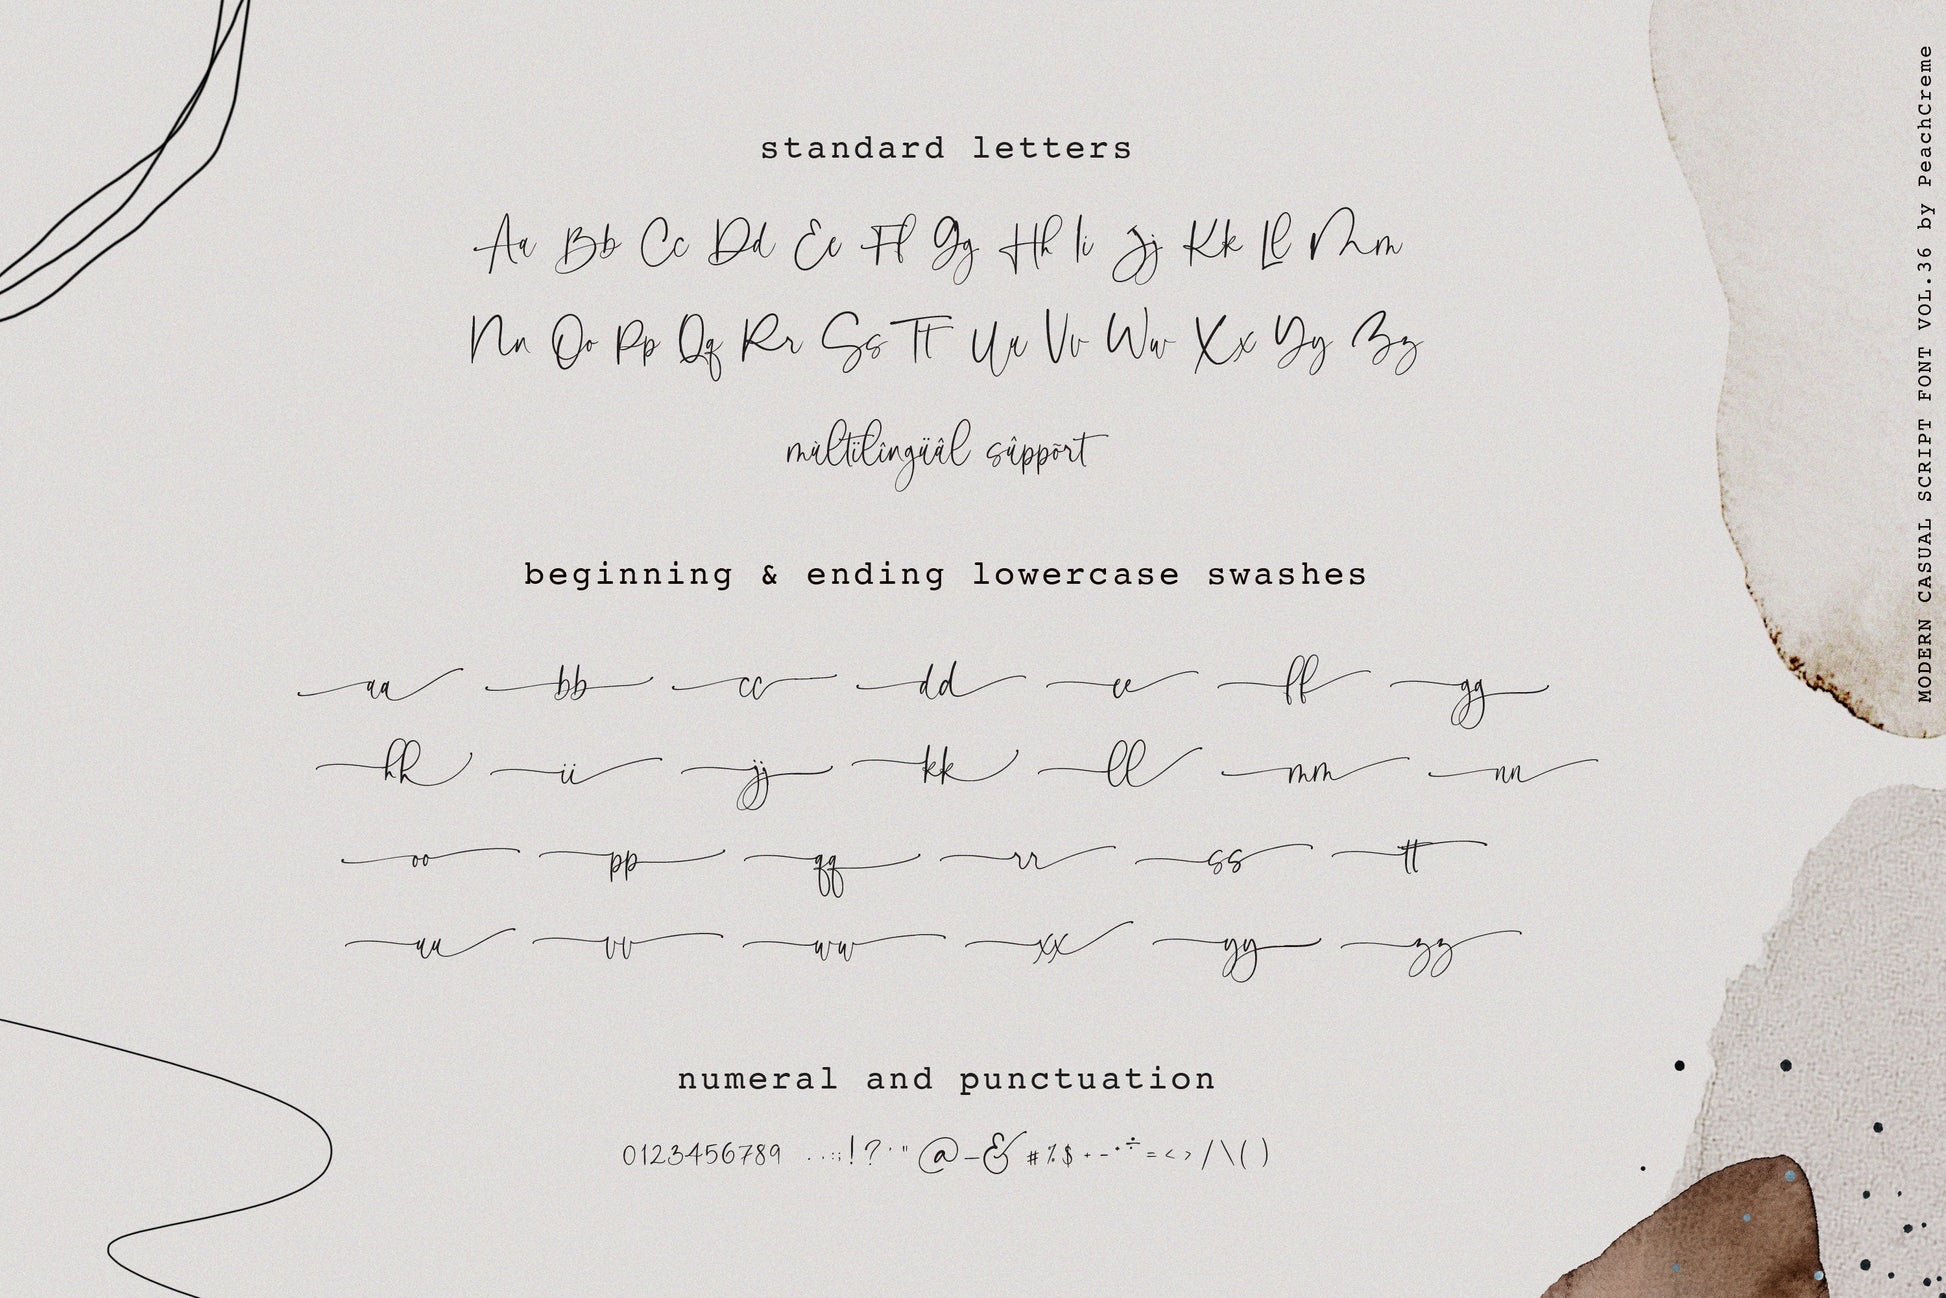 standard letters
Aa Bb Cc Dd Ee Ff Gg Hh Ii Jj Kk Ll Mm
Nn Oo Pp Qq Rr Ss Tt Uu Vv Ww Xx Yy Zz
mùltïlîngüâl sûppõrt
beginning & ending lowercase swashes
aa bb cc dd ee ff gg
hh ii jj kk ll mm nn
oo pp qq rr ss tt
uu vv ww xx yy zz
numeral and punctuation
0123456789 . , : ; ! ? ' " @ _ & # % $ + - * ÷ = < > / \ ( )
MODERN CASUAL SCRIPT FONT VOL.36 by PeachCreme